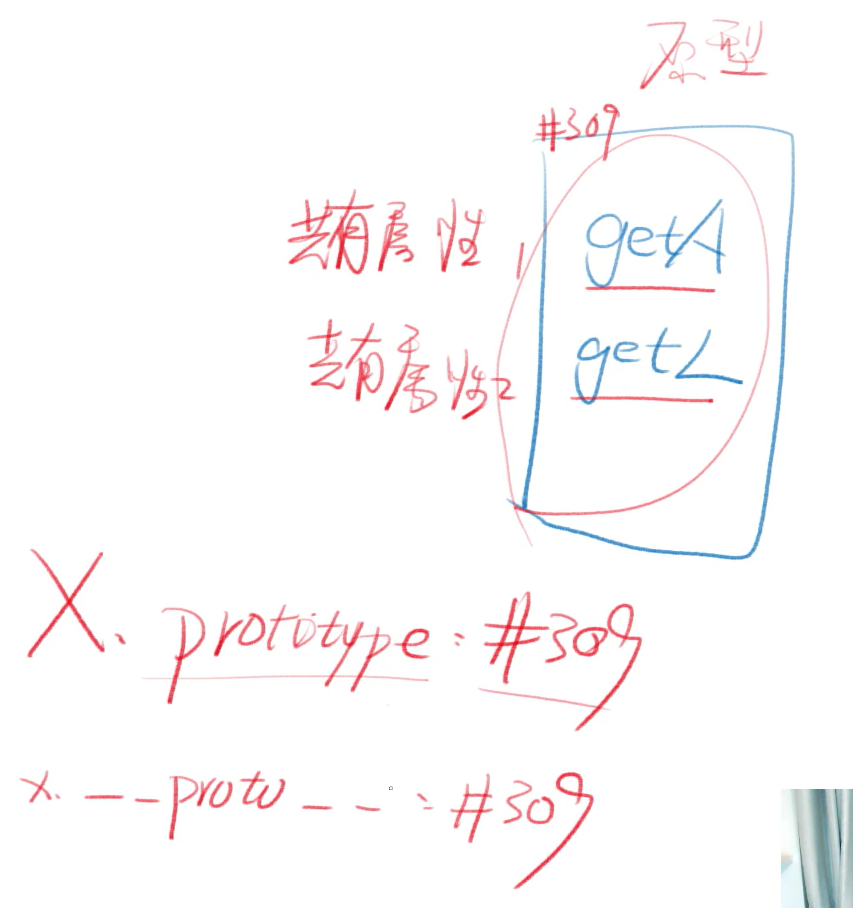 原型
#309
共有属性1 getA
共有属性2 getL
X.prototype:#309
x.__proto__:#309